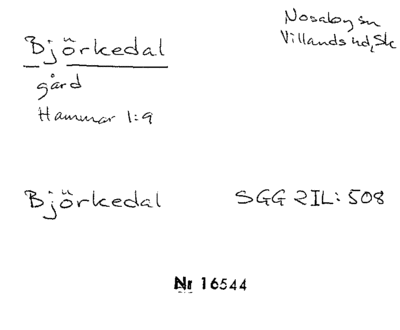 Björkedal
Nosaby sn
Villands hd, Sk
gård
Hammar 1:9
Björkedal SGG 2IL: 508
Nr 16544